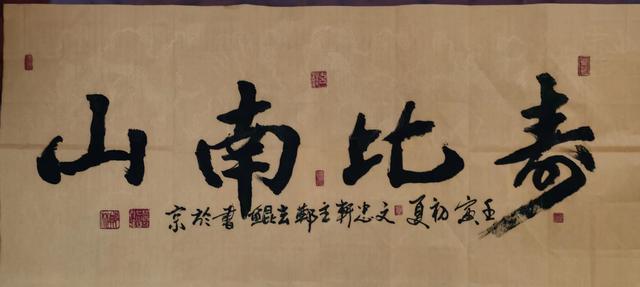 寿比南山
壬寅初夏文忠軒主鄭鯤書於京